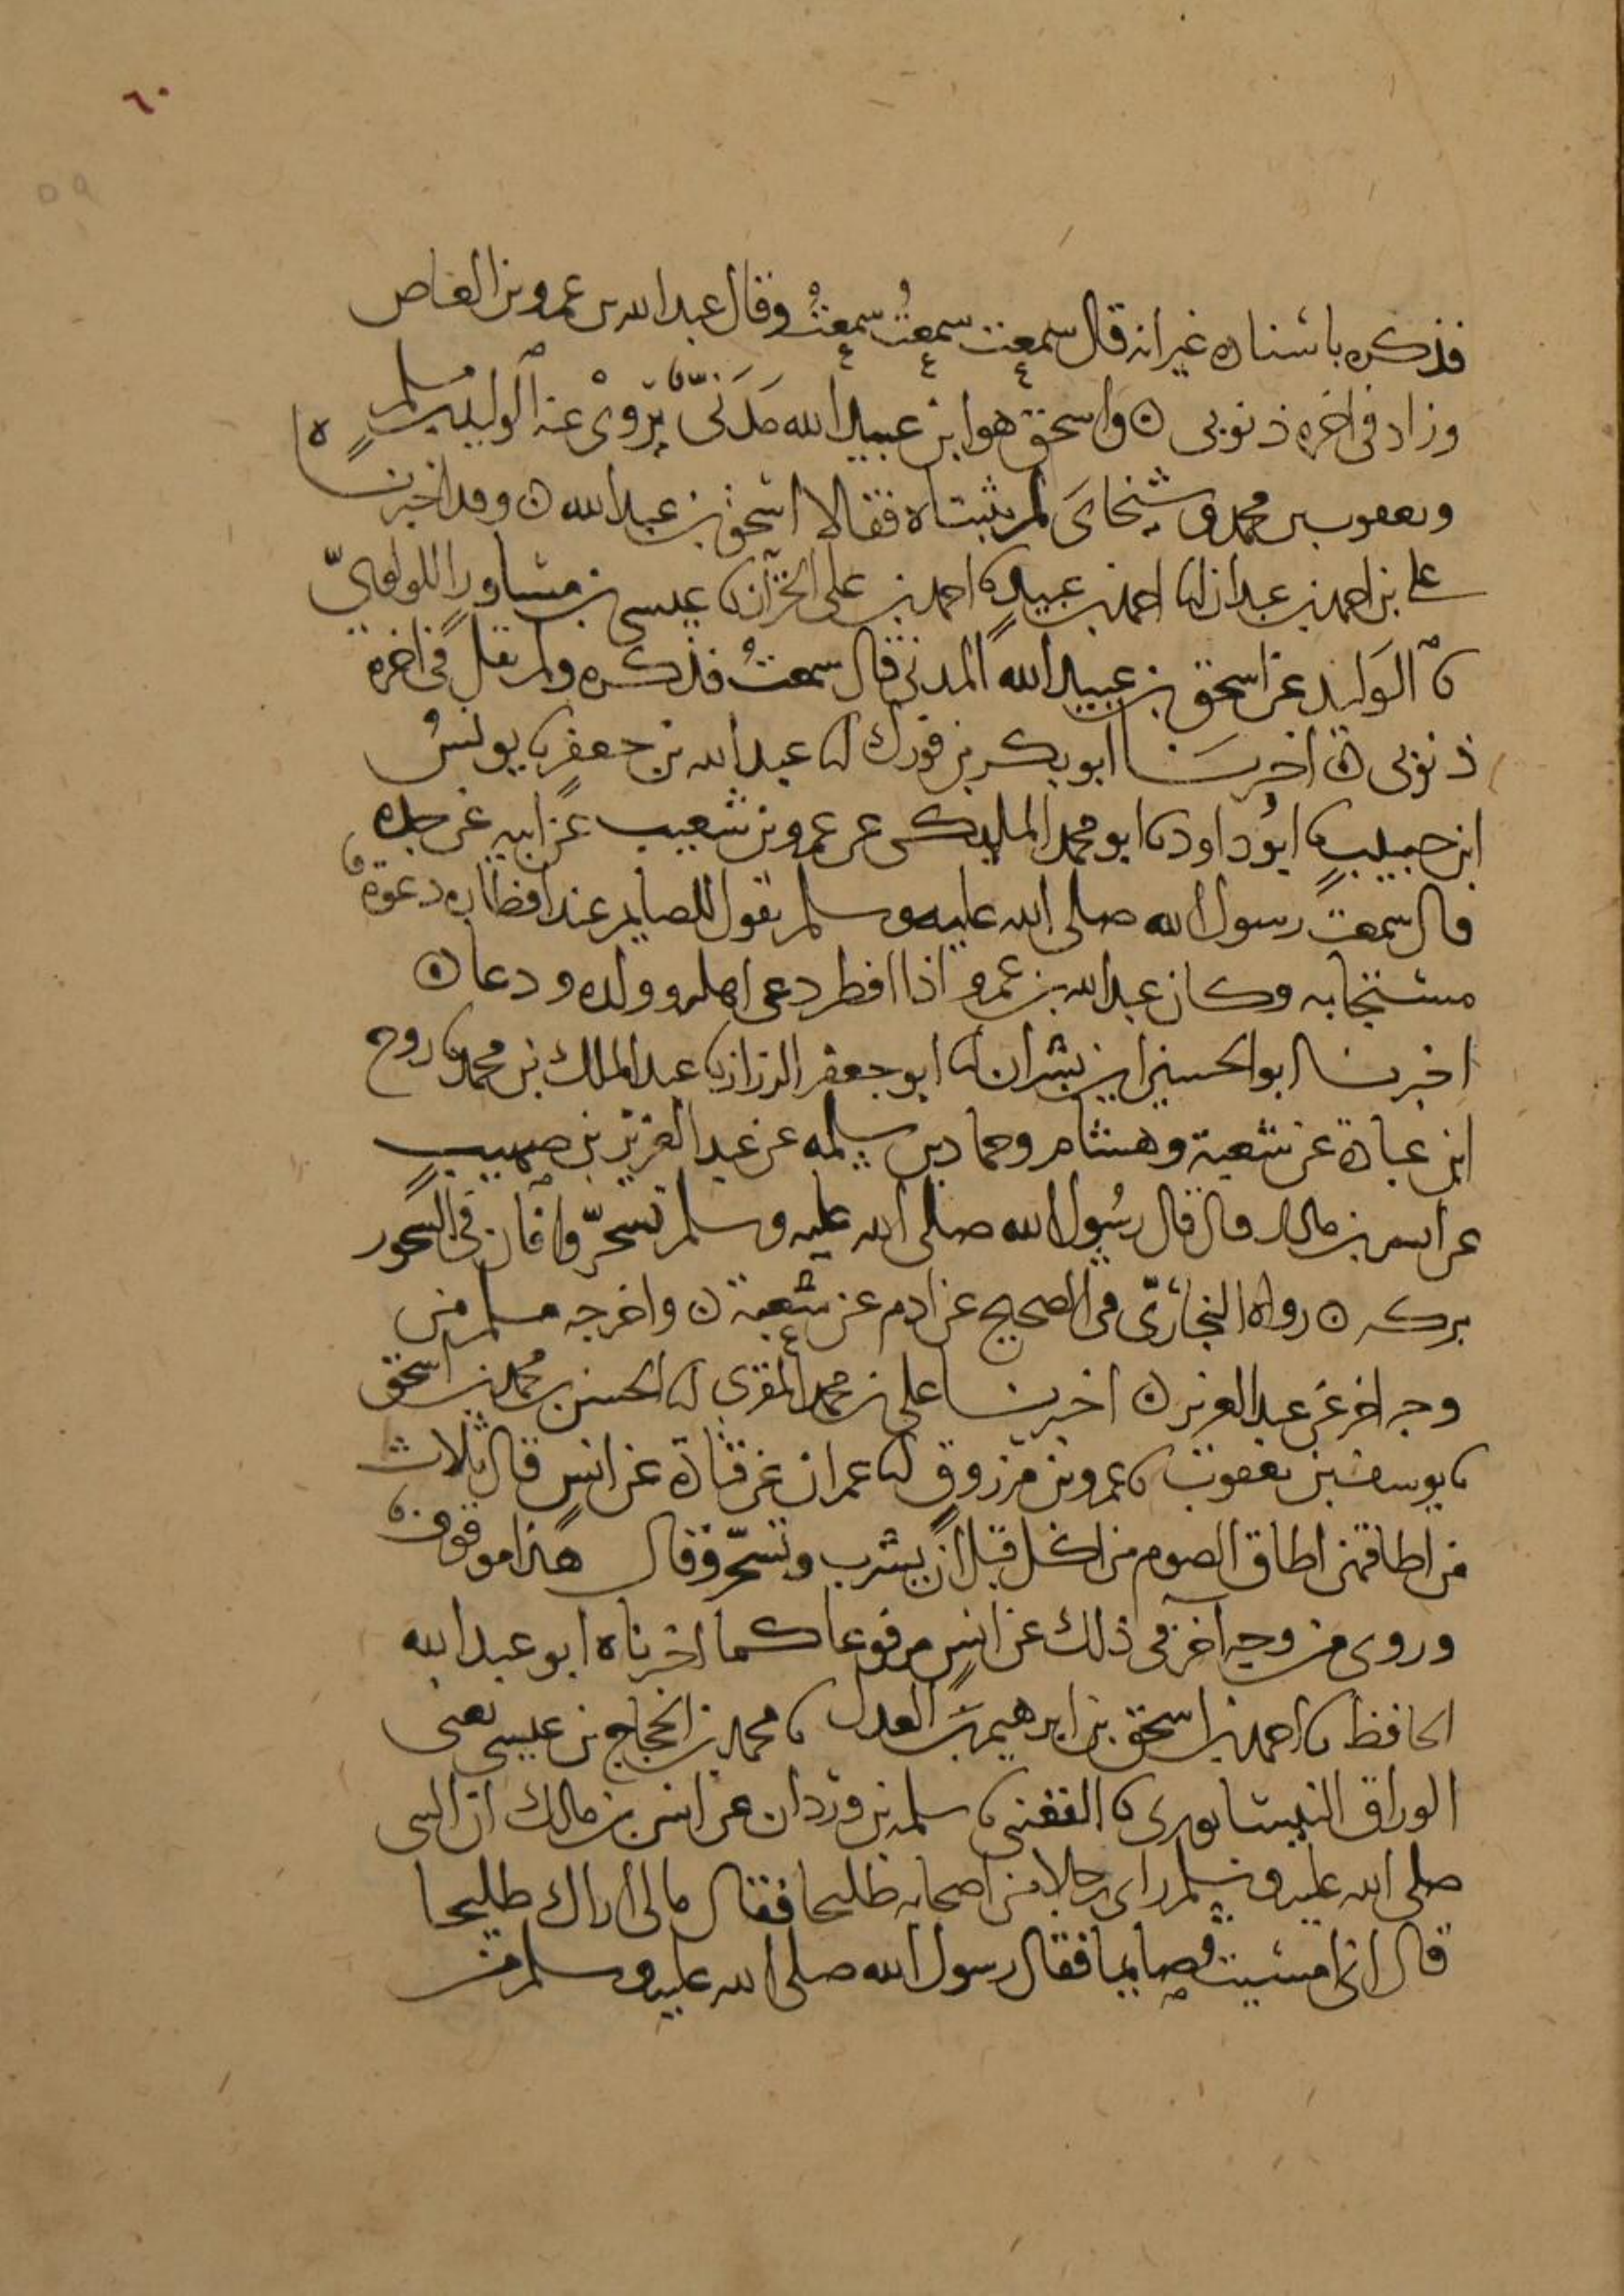 ٦٠
٥٩
فذكره باسناده غير انه قال سمعت سمعتُ سمعتُ وقال عبد الله بن عمرو بن العاص
وزاد في اخره ذنوبي ه واسحق هو ابن عبيد الله مَدَنيّ يَروي عنه الوليد بن مسلم
ويعقوب بن محمد وشيخاي لم يثبتاه فقالا اسحق بن عبد الله ه وقد اخبرناه
علي بن احمد بن عبدان انا احمد بن عبيدٍ نا احمد بن علي الخزاز نا عيسى بن مساور اللولويّ
نا الوليد عن اسحق بن عبيد الله المدني قال سمعتُ فذكره ولم يقل في اخره
ذنوبي ه اخبرنا ابو بكر بن فورك انا عبد الله بن جعفر نا يونسُ
ابن حبيبٍ نا ابو داود نا ابو محمد المليكي عن عمرو بن شعيب عن ابيه عن جده
قال سمعت رسول الله صلى الله عليه وسلم يقول للصايم عند افطاره دعوة
مستجابه وكان عبد الله بن عمرو اذا افطر دعى اهله وولده ودعا ه
اخبرنا ابو الحسين ابن بشران انا ابو جعفر الرزاز نا عبد الملك بن محمد نا روح
ابن عبادة عن شعبة وهشام وحماد بن سلمه عن عبد العزيز بن صهيبٍ
عن انس بن مالك قال قال رسُول الله صلى الله عليه وسلم تسحّروا فان في السحور
بركه ه رواه البخاريّ في الصحيح عن ادم عن شعبة ه واخرجه مسلم من
وجه اخر عن عبد العزيز ه اخبرنا علي بن محمد المقرى انا الحسن بن محمد بن اسحق
نا يوسف بن يعقوب نا عمرو بن مرزوق انا عمران عن قتادة عن انسٍ قال ثلاث
من اطاقهن اطاق الصوم من اكل قبل ان يشرب وتسحّر وقال هذا موقوف
وروى من وجه اخر في ذلك عن انسٍ مرفوعا كما اخبرناه ابو عبد الله
الحافظ نا احمد بن اسحق بن ابرهيم العدل نا محمد بن الحجاج بن عيسى يعنى
الوراق النيسابوري نا القعنبي نا سلمه بن وردان عن انس بن مالك ان النبي
صلى الله عليه وسلم راى رجلا من اصحابه طليحا فقال مالي اراك طليحا
قال اني امسيت صايما فقال رسول الله صلى الله عليه وسلم من